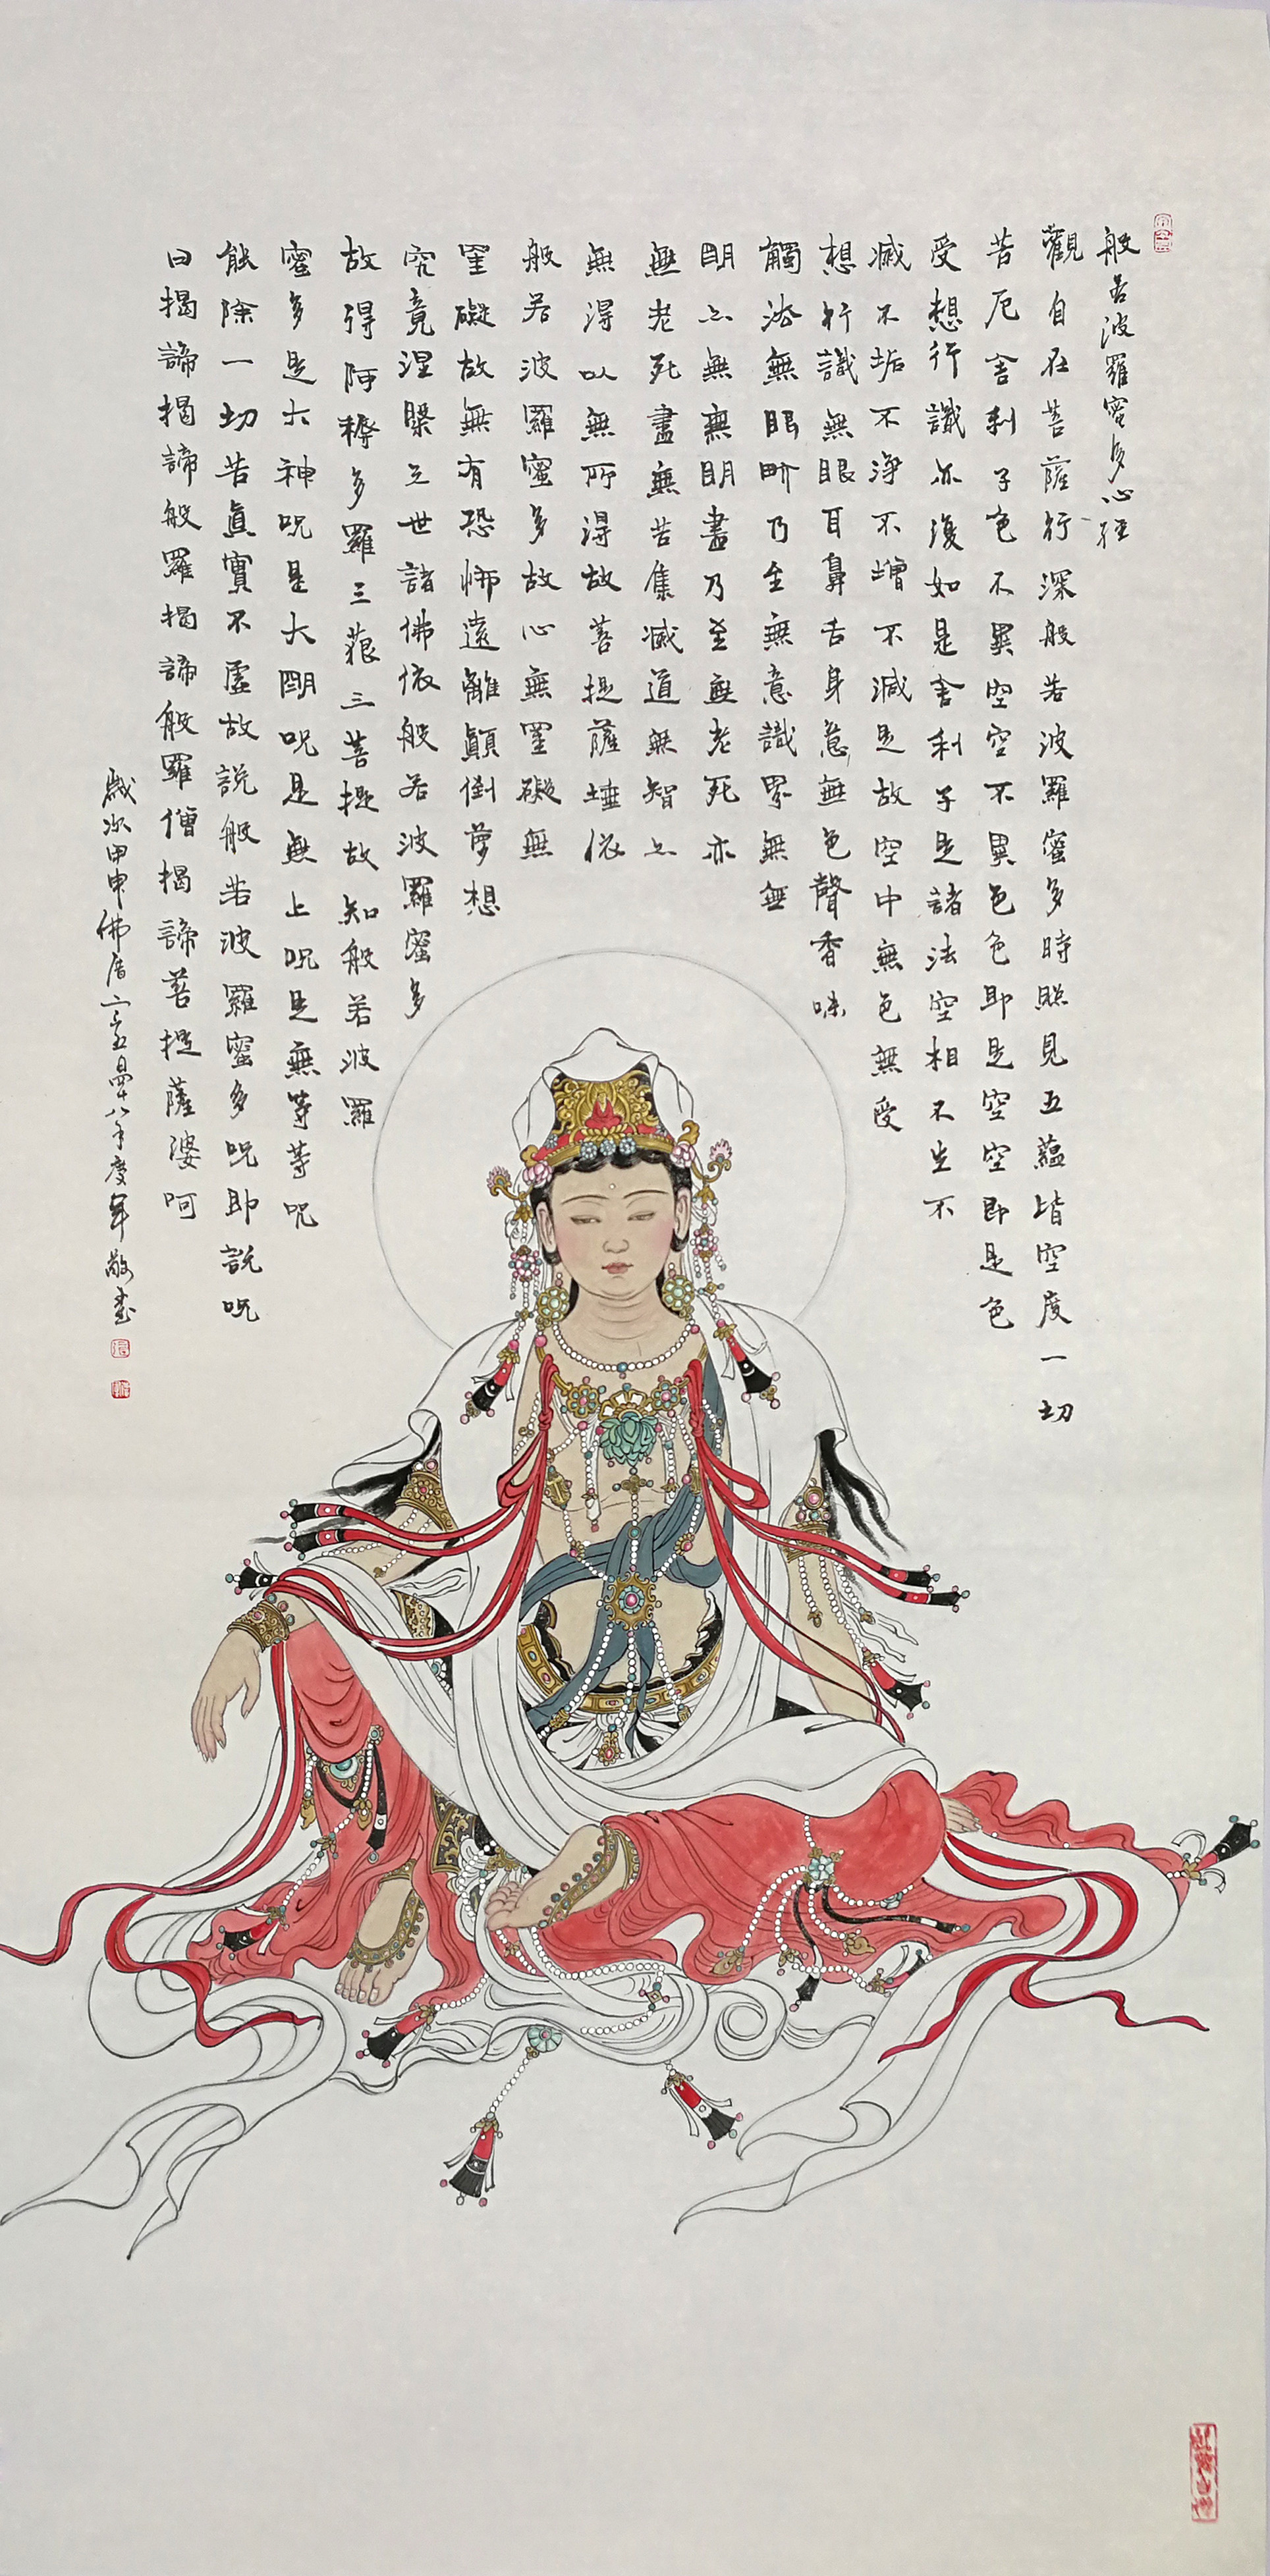 般若波羅蜜多心經
觀自在菩薩行深般若波羅蜜多時照見五蘊皆空度一切
苦厄舍利子色不異空空不異色色即是空空即是色
受想行識亦復如是舍利子是諸法空相不生不
滅不垢不淨不增不減是故空中無色無受
想行識無眼耳鼻舌身意無色聲香味
觸法無眼界乃至無意識界無無
明亦無無明盡乃至無老死亦
無老死盡無苦集滅道無智亦
無得以無所得故菩提薩埵依
般若波羅蜜多故心無罣礙無
罣礙故無有恐怖遠離顛倒夢想
究竟涅槃三世諸佛依般若波羅蜜多
故得阿耨多羅三藐三菩提故知般若波羅
蜜多是大神呪是大明呪是無上呪是無等等呪
能除一切苦真實不虛故說般若波羅蜜多呪即說呪
曰揭諦揭諦般羅揭諦般羅僧揭諦菩提薩婆呵
歲次甲申佛曆二五四十八年度年敬書